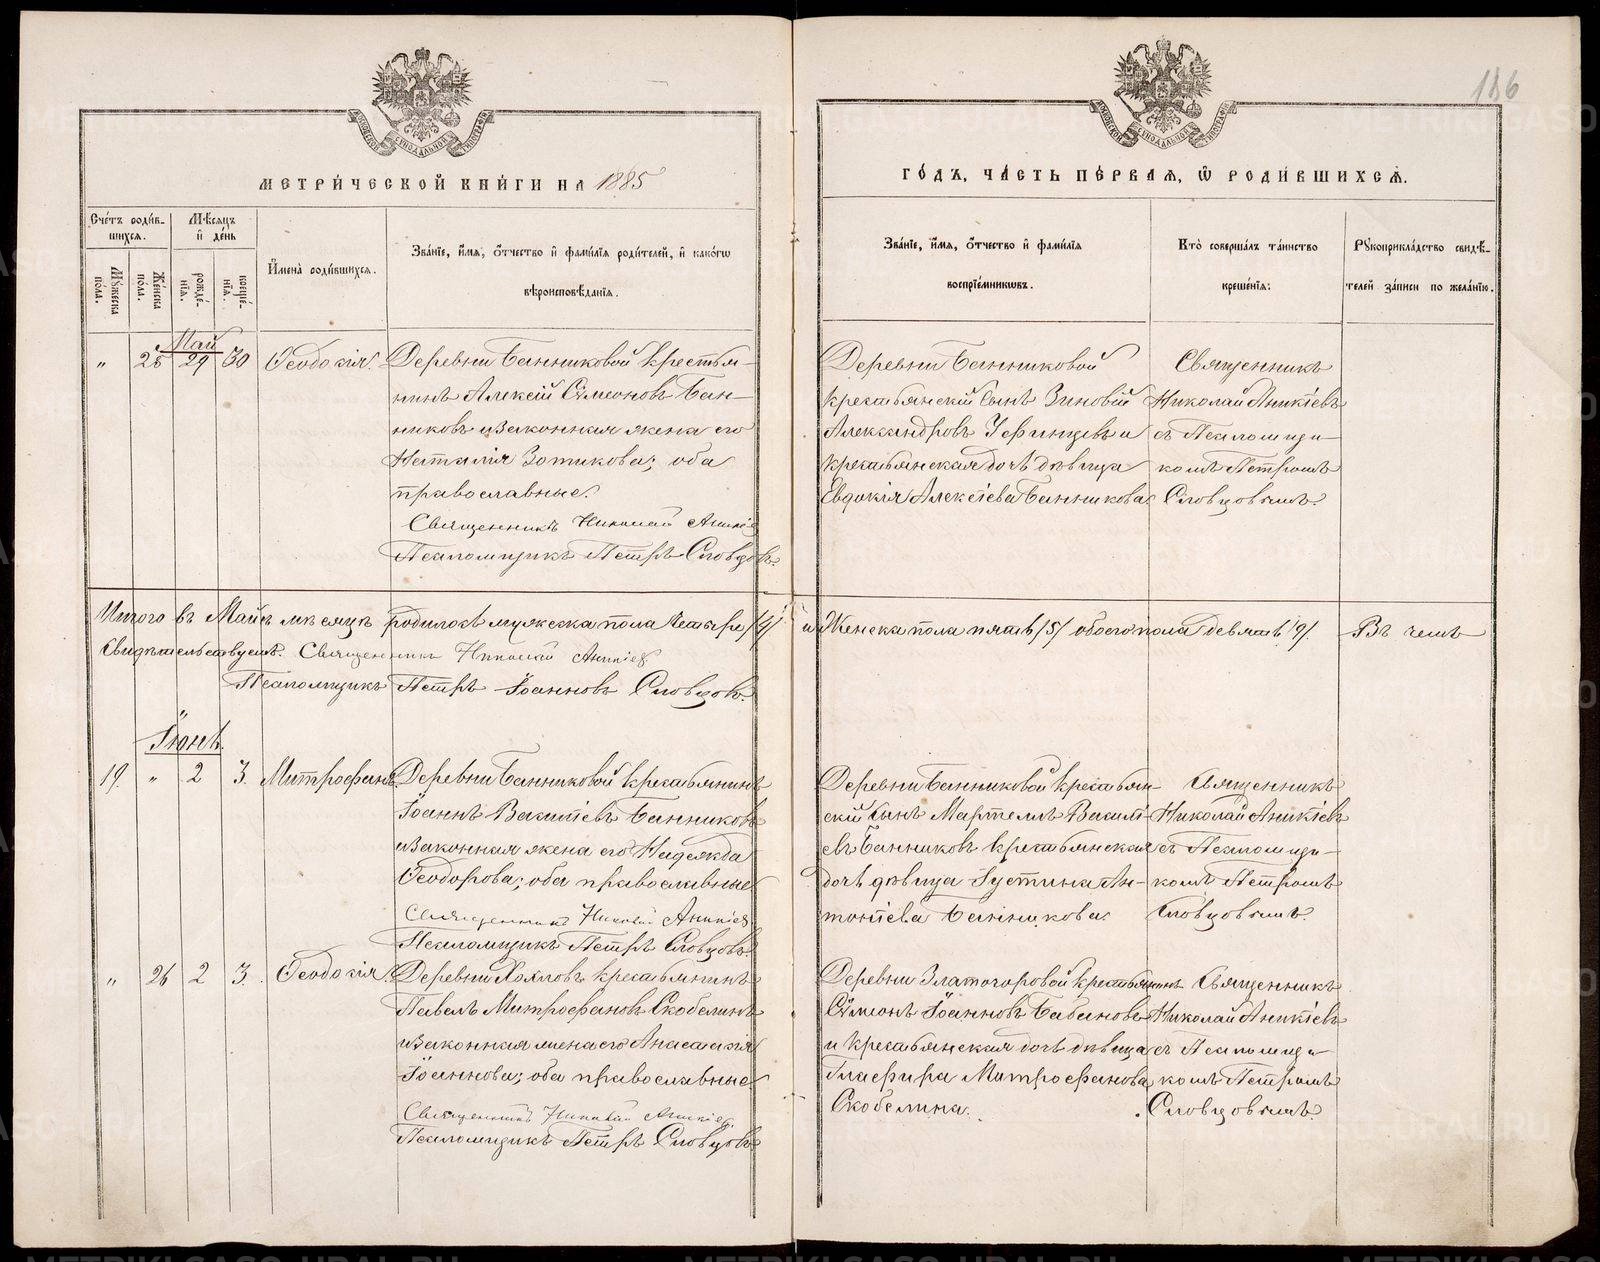 186
МЕТРИ́ЧЕСКОЙ КНИ́ГИ НА 1885
ГО́ДЪ, ЧА́СТЬ ПЕ́РВАЯ, Ѡ РОДИ́ВШИХСЯ.
Сче́тъ роди́в-
шихся.
Мѣсяцъ
и де́нь
Му́жеска
по́ла.
Же́нска
по́ла.
рожде́-
нія.
креще́-
нія.
Имена̀ роди́вшихся.
Зва́нїе, и́мя, о́тчество и фами́лїя роди́телей, и како́гѡ
вѣроисповѣ́данїя.
Зва́нїе, и́мя, о́тчество и фами́лїя
воспрїе́мникѡвъ.
Кто̀ соверша́лъ та́инство
креще́нїя:
Рукоприкла́дство свидѣ́-
телей за́писи по жела́нїю.
Май
" 25 29 30 Ѳеодосія.
Деревни Банниковой крестья-
нинъ Алексій Сѵмеоновъ Бан-
никовъ и законная жена его
Наталія Зотикова; оба
православные.
Священникъ Николай Аникіев
Псаломщикъ Петръ Словцовъ.
Деревни Банниковой
крестьянскій сынъ Зиновій
Александровъ Уфинцевъ и
крестьянская дочь дѣвица
Евдокія Алексіева Банникова.
Священникъ
Николай Аникіевъ
съ Псаломщи-
комъ Петромъ
Словцовымъ.
Итого въ Май мѣсяцѣ родилось мужеска пола четыре /4/ и женска пола пять /5/ обоего пола девять /9/. Въ чемъ
Свидѣтельствуемъ. Священникъ Николай Аникіев
Псаломщикъ Петръ Іоанновъ Словцовъ.
Іюнь.
19. " 2 3. Митрофанъ.
Деревни Банниковой крестьянинъ
Іоаннъ Василіевъ Банниковъ
и законная жена его Надежда
Ѳеодорова; оба православные
Священникъ Николай Аникіев.
Псаломщикъ Петръ Словцовъ.
Деревни Банниковой крестьян-
скій сынъ Мартемъ Василі-
евъ Банниковъ крестьянская
дочь дѣвица Іустина Ан-
тоніева Банникова.
Священникъ
Николай Аникіевъ
съ Псаломщи-
комъ Петромъ
Словцовымъ.
" 26 2 3. Ѳеодосія.
Деревни Хохловъ крестьянинъ
Павелъ Митрофановъ Скобелинъ
и законная жена его Анастасія
Іоаннова; оба православные.
Священникъ Николай Аникіев.
Псаломщикъ Петръ Словцовъ
Деревни Златогоровой крестьянинъ
Сѵмеонъ Іоанновъ Бабановъ
и крестьянская дочь дѣвица
Глафира Митрофанова
Скобелина.
Священникъ
Николай Аникіевъ
съ Псаломщи-
комъ Петромъ
Словцовымъ.